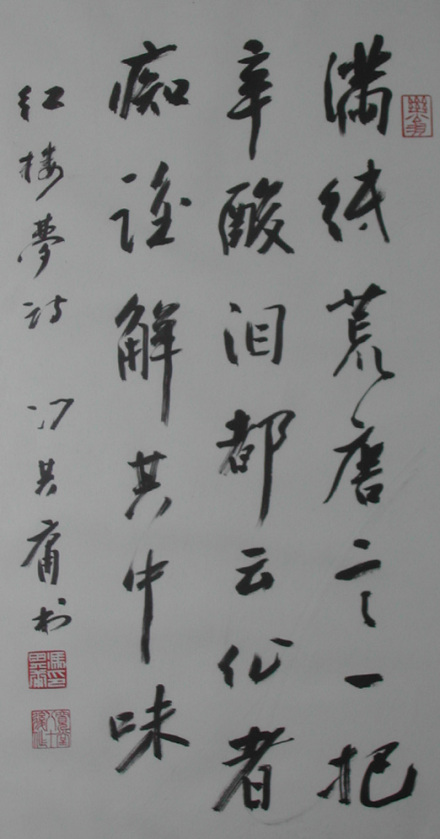 满纸荒唐言一把
辛酸泪都云作者
痴谁解其中味
红楼夢诗 冯其庸书